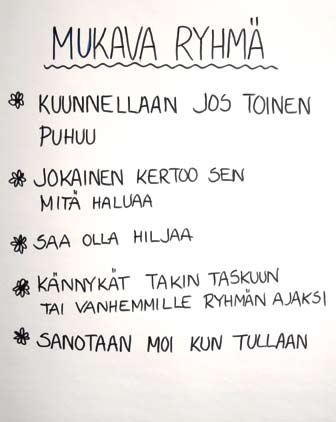 MUKAVA RYHMÄ
KUUNNELLAAN JOS TOINEN
PUHUU
JOKAINEN KERTOO SEN
MITÄ HALUAA
SAA OLLA HILJAA
KÄNNYKÄT TAKIN TASKUUN
TAI VANHEMMILLE RYHMÄN AJAKSI
SANOTAAN MOI KUN TULLAAN